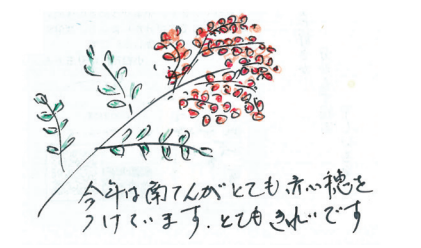 今年は南てんがとても赤い穂を
つけています。とてもきれいです